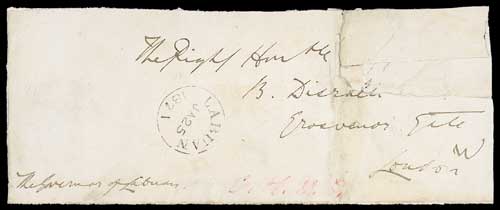 The Right Hon ble
B. Disraeli
Grosvenor Gate
London
W
LABUAN
JA25
1871
The Governor of Labuan